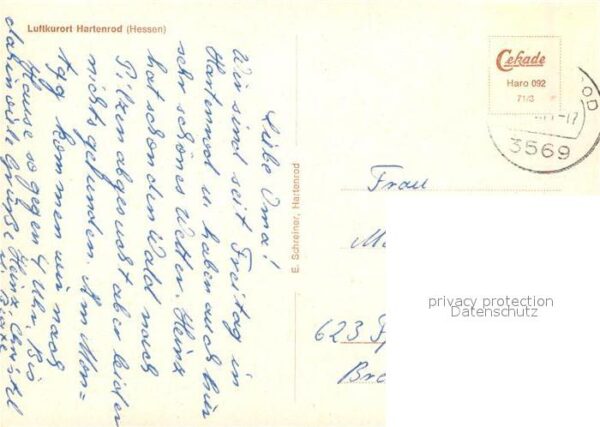 Luftkurort Hartenrod (Hessen)
Liebe Oma!
Wir sind seit Freitag in
Hartenrod u. haben auch hier
sehr schönes Wetter. Heinz
hat schon den Wald nach
Pilzen abgesucht aber leider
nichts gefunden. Am Mon=
tag kommen wir nach
Hause so gegen 4 Uhr. Bis
dahin viele Grüße Heinz, Christl
E. Schreiner, Hartenrod
Cekade
Haro 092
71/3
-17
OD
3569
Frau
623
Bre
privacy protection
Datenschutz